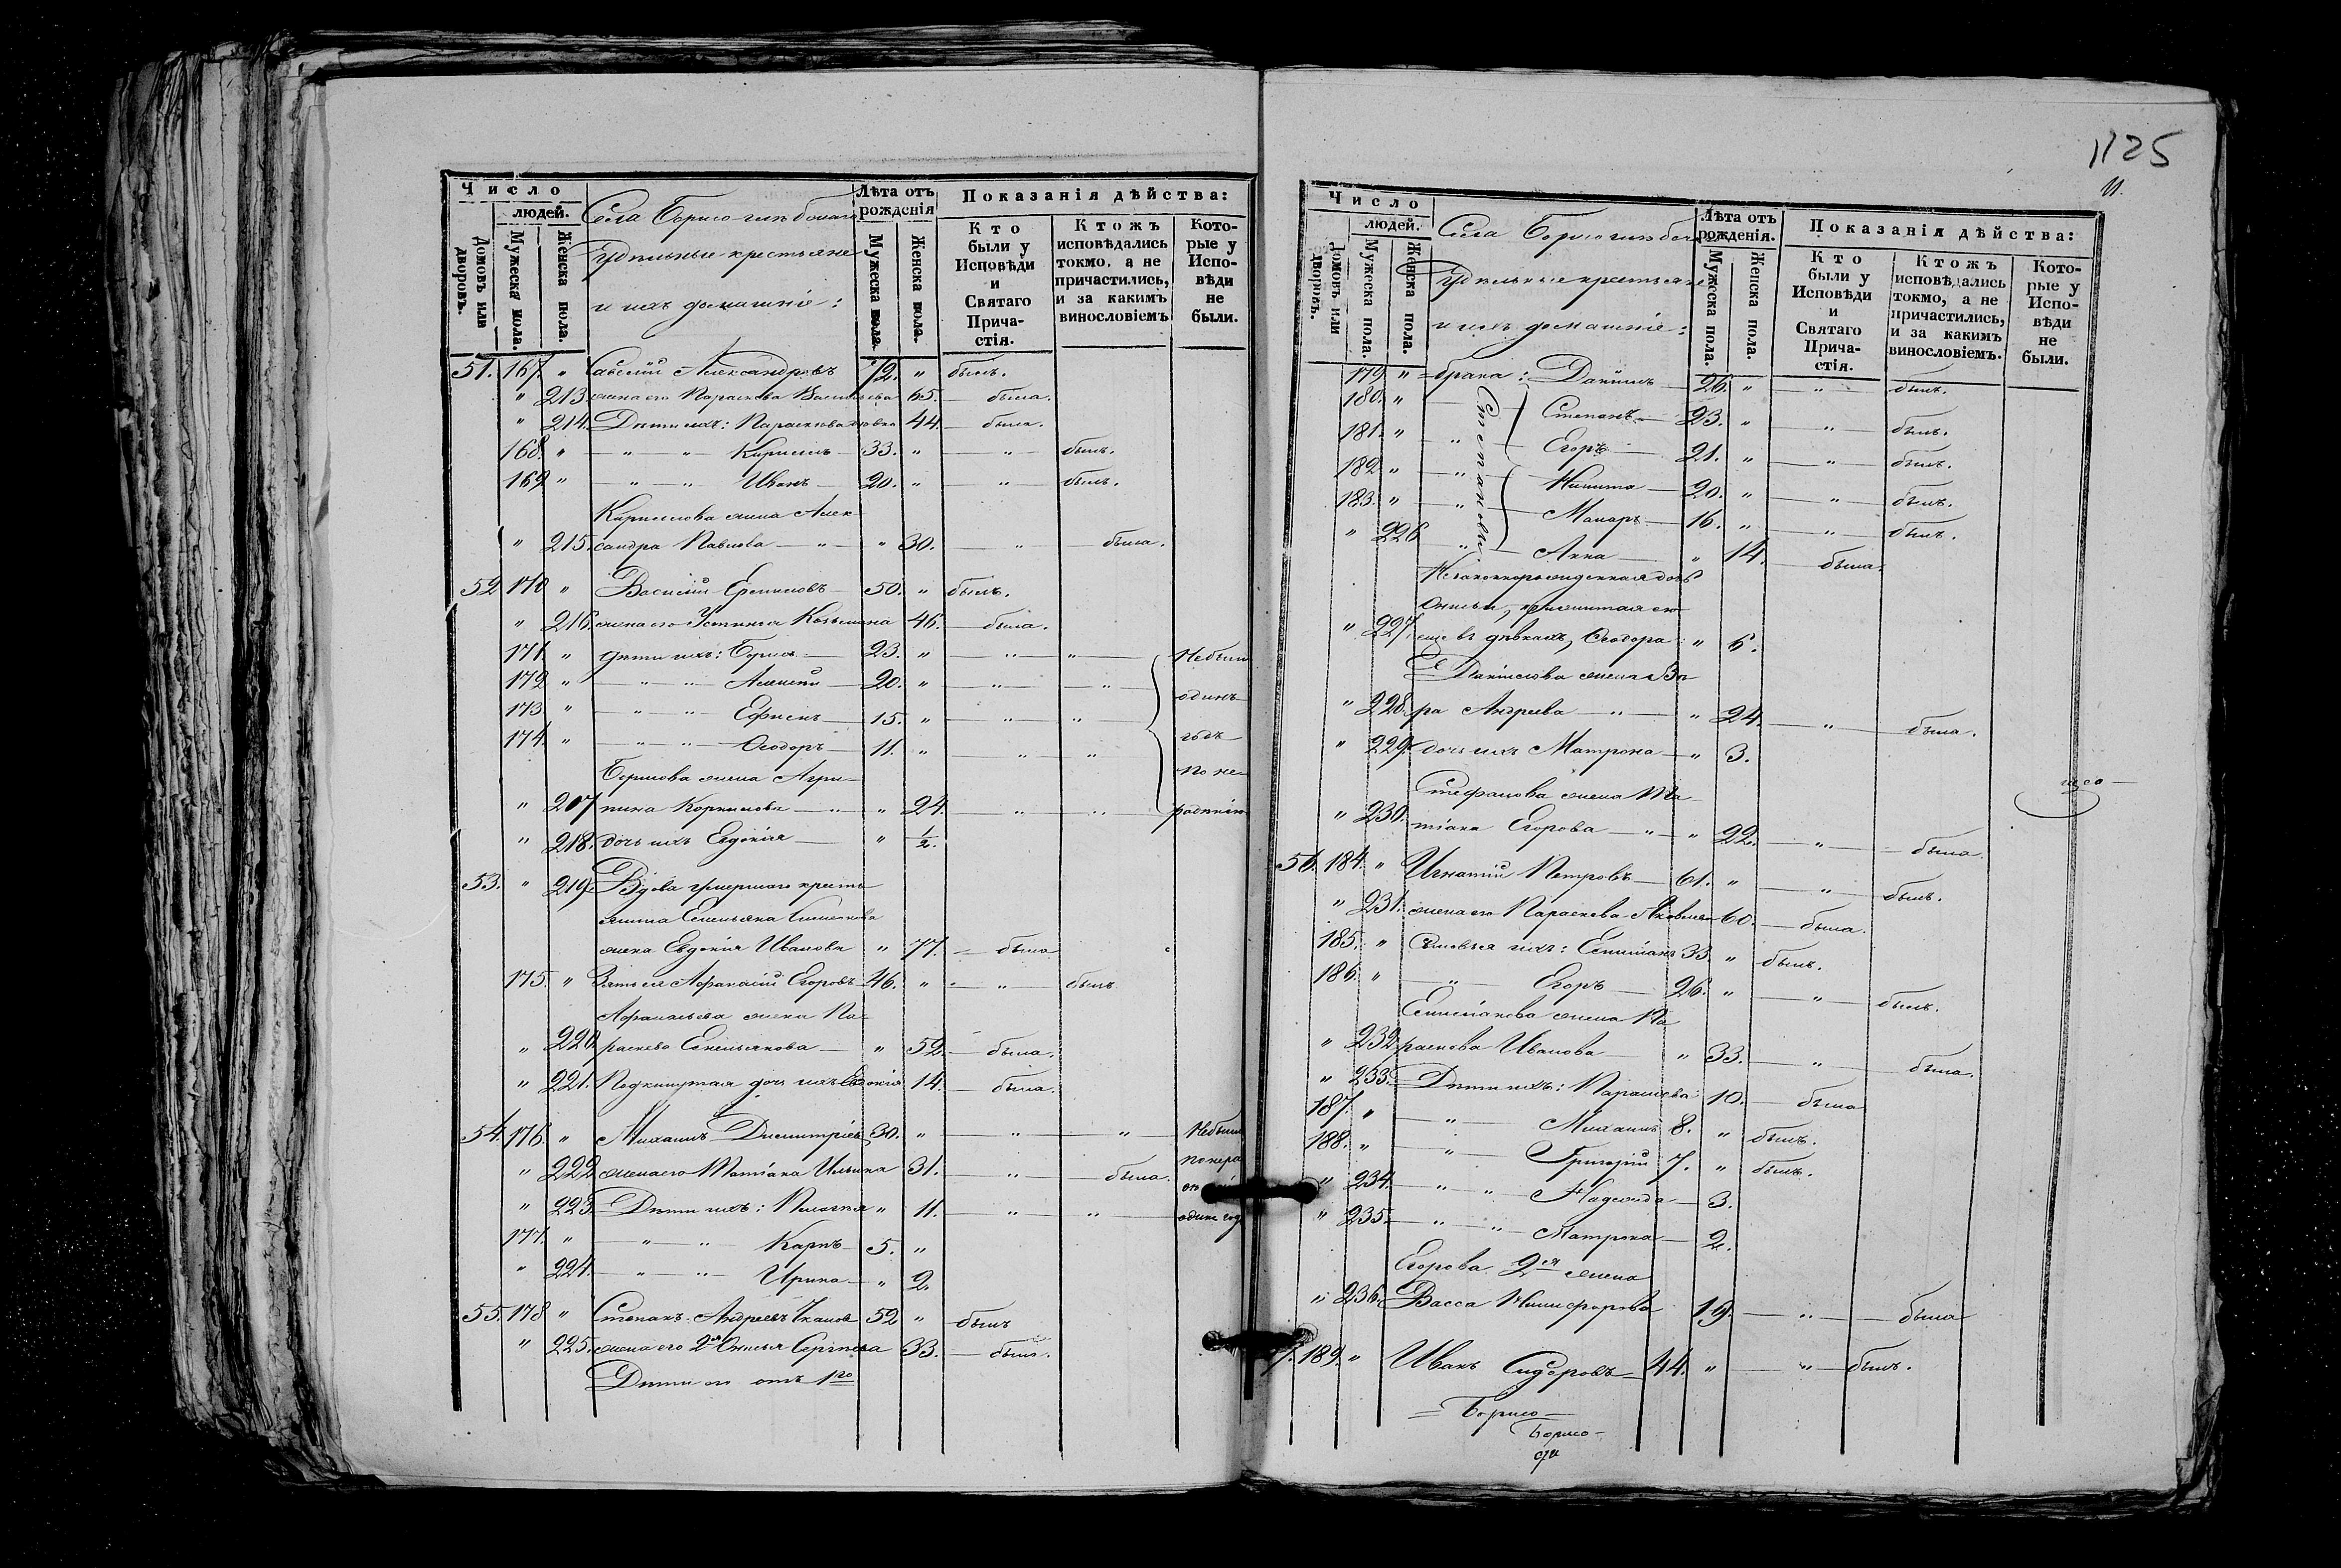 Число
людей.
Домовъ или дворовъ.
Мужеска пола.
Женска пола.
Села Борисоглѣбскаго
Удѣльные крестьяне
и ихъ домашніе:
Лѣта отъ рожденія
Мужеска пола.
Женска пола.
Показанія дѣйства:
Кто были у Исповѣди и Святаго Причастія.
Ктожъ исповѣдались токмо, а не причастились, и за какимъ винословіемъ
Которые у Исповѣди не были.
51. 167. " Савелій Александровъ 72. " былъ.
" 213. жена его Параскева Васильева 65. — была.
" 214. Дѣти ихъ: Параскева 44. — была.
168. " — " — " Кириллъ — 33. " — " — былъ.
169 " — " — " Иванъ — 20. " — " — былъ.
Кириллова жена Алек-
" 215. сандра Павлова — " — " 30. — " — была.
52 170 " Василій 50. " былъ.
" 216. жена его Устинья Козьмина 46. — была.
171. " дѣти ихъ: Борисъ — 23. " — " — " — Небыли
172 " — " — " Алексѣй — 20. " — " — " — одинъ
173. " — " — " 15. " — " — " годъ
174. " — " — " — Ѳеодоръ — 11. " — " — " по не-
Борисова жена Агри-
" 217 пина Корнилова — " — " 24. — " — " — радѣнію
" 218. дочь ихъ Евдокія — " 1/2.
53. " 219. Вдова умершаго кресть-
янина Емельяна
жена Евдокія Иванова " 77. — была
175. " Зять ея Афанасій Егоровъ 46. " — " — былъ
Афанасьева жена Па-
" 220. раскева Емельянова — " 52. — была.
" 221. Подкинутая дочь ихъ Евдокія 14. — была.
54. 176. " Михаилъ Димитріевъ 30. " — " — " — Небылъ
" 222. жена его Татіана Ильина 31. — " — была. по нера
" 223. Дѣти ихъ: Пелагея " 11. — " — " — одинъ год
177. " — " — " Карпъ — 5. "
" 224. — " — " Ирина — " 2.
55. 178 " Степанъ Андреевъ 52 " былъ
" 225. жена его 2я Сергѣева 33. — была.
Дѣти его отъ 1го
1125
11.
Число
людей.
Домовъ или дворовъ.
Мужеска пола.
Женска пола.
Села Борисоглѣбска
Удѣльные крестьяне
и ихъ домашніе:
Лѣта отъ рожденія.
Мужеска пола.
Женска пола.
Показанія дѣйства:
Кто были у Исповѣди и Святаго Причастія.
Ктожъ исповѣдались токмо, а не причастились, и за какимъ винословіемъ.
Которые у Исповѣди не были.
179 " брака: Даніилъ — 26. " — " — былъ.
Степановы
180. " — Степанъ — 23. " — " — былъ.
181. " — " — Егоръ — 21. " — " — былъ.
182 " — " — Никита — 20. " — " — былъ.
183. " — " — Макаръ — 16. " — " — былъ.
" 226 — " — Анна — " 14. — была.
Незаконнорожденная дочь
прижитая ею
" 227. еще въ дѣвкахъ, Ѳеодора " 6.
Даніилова жена Вѣ-
" 228. ра Андреева — " — " 24. — " — была.
" 229. дочь ихъ Матрона — " 3.
Стефанова жена Та-
" 230. тіана Егорова — " — " 22. — " — была.
56. 184. " Игнатій Петровъ — 61. " — " — былъ.
" 231. жена его Параскева Яковлева 60. — была.
185. " Сыновья ихъ: 33 " былъ.
186. " — " — Егоръ — 26. " — " — былъ.
жена Па-
" 232. раскева Иванова — " 33. — " — была.
" 233. Дѣти ихъ: Параскева 10. — была
187. " — " — Михаилъ 8. " былъ.
188. " — " — Григорій 7. " былъ.
" 234. — " — " Надежда — 3.
" 235. — " — " — Матрона — 2.
Егорова 2ая жена
" 236. Васса Никифорова 19. — " — была
7. 189. " Иванъ Сидоровъ — 44. " — " — былъ.
= Борисо —
Борисо-